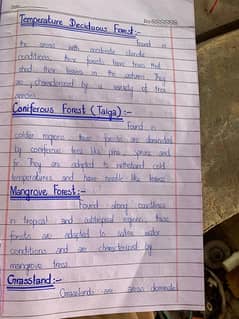 Temperature Deciduous Forest:-
Found in
the areas with moderate climatic
conditions, these forests have trees that
shed their leaves in the autumn. They
are characterized by a variety of tree
species.
Coniferous Forest (Taiga):-
Found in
colder regions, these forests are dominated
by coniferous trees like pine, spruce and
fir. They are adapted to withstand cold
temperatures and have needle like leaves.
Mangrove Forest:-
Found along coastlines
in tropical and subtropical regions, these
forests are adapted to saline water
conditions and are characterized by
mangrove trees.
Grassland:-
Grasslands are areas dominate